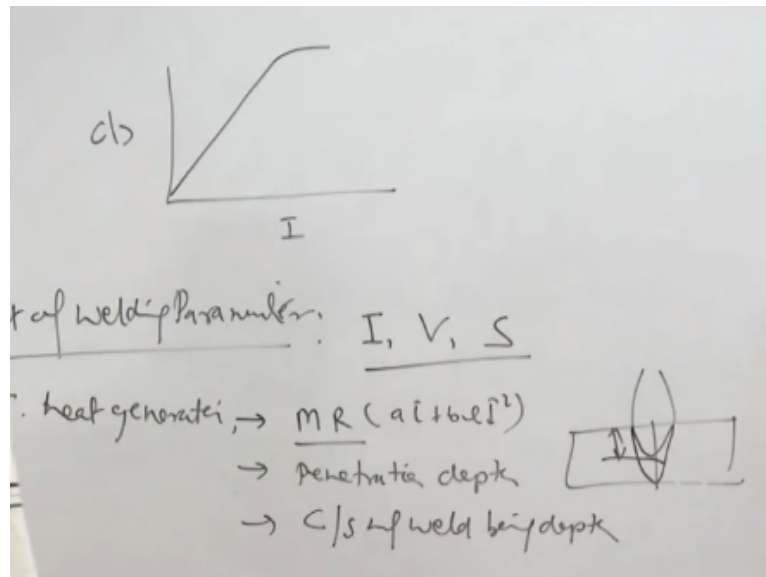 I
of Welding Parameter: I, V, S
heat generatei, → MR (aI+blI²)
→ Penetratin depth
→ C/s of weld being depth